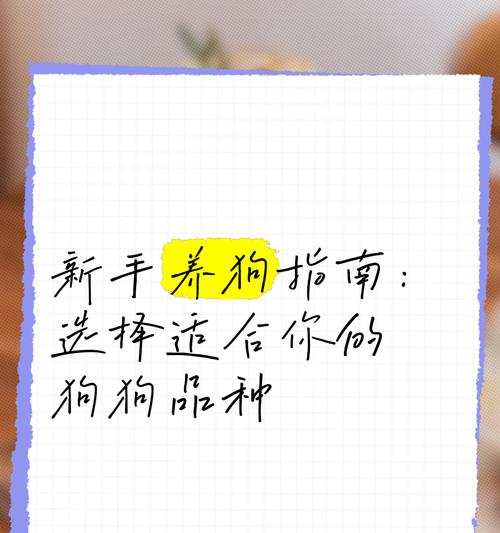 新手养狗指南：
选择适合你的
狗狗品种